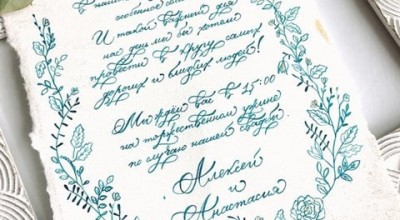 особенное
И такой важного для
нас дня мы бы хотели
провести в кругу самых
дорогих и близких людей!
Мы ждём вас в 15:00
на торжественном ужине
по случаю нашей свадьбы.
Алексей
и
Анастасия